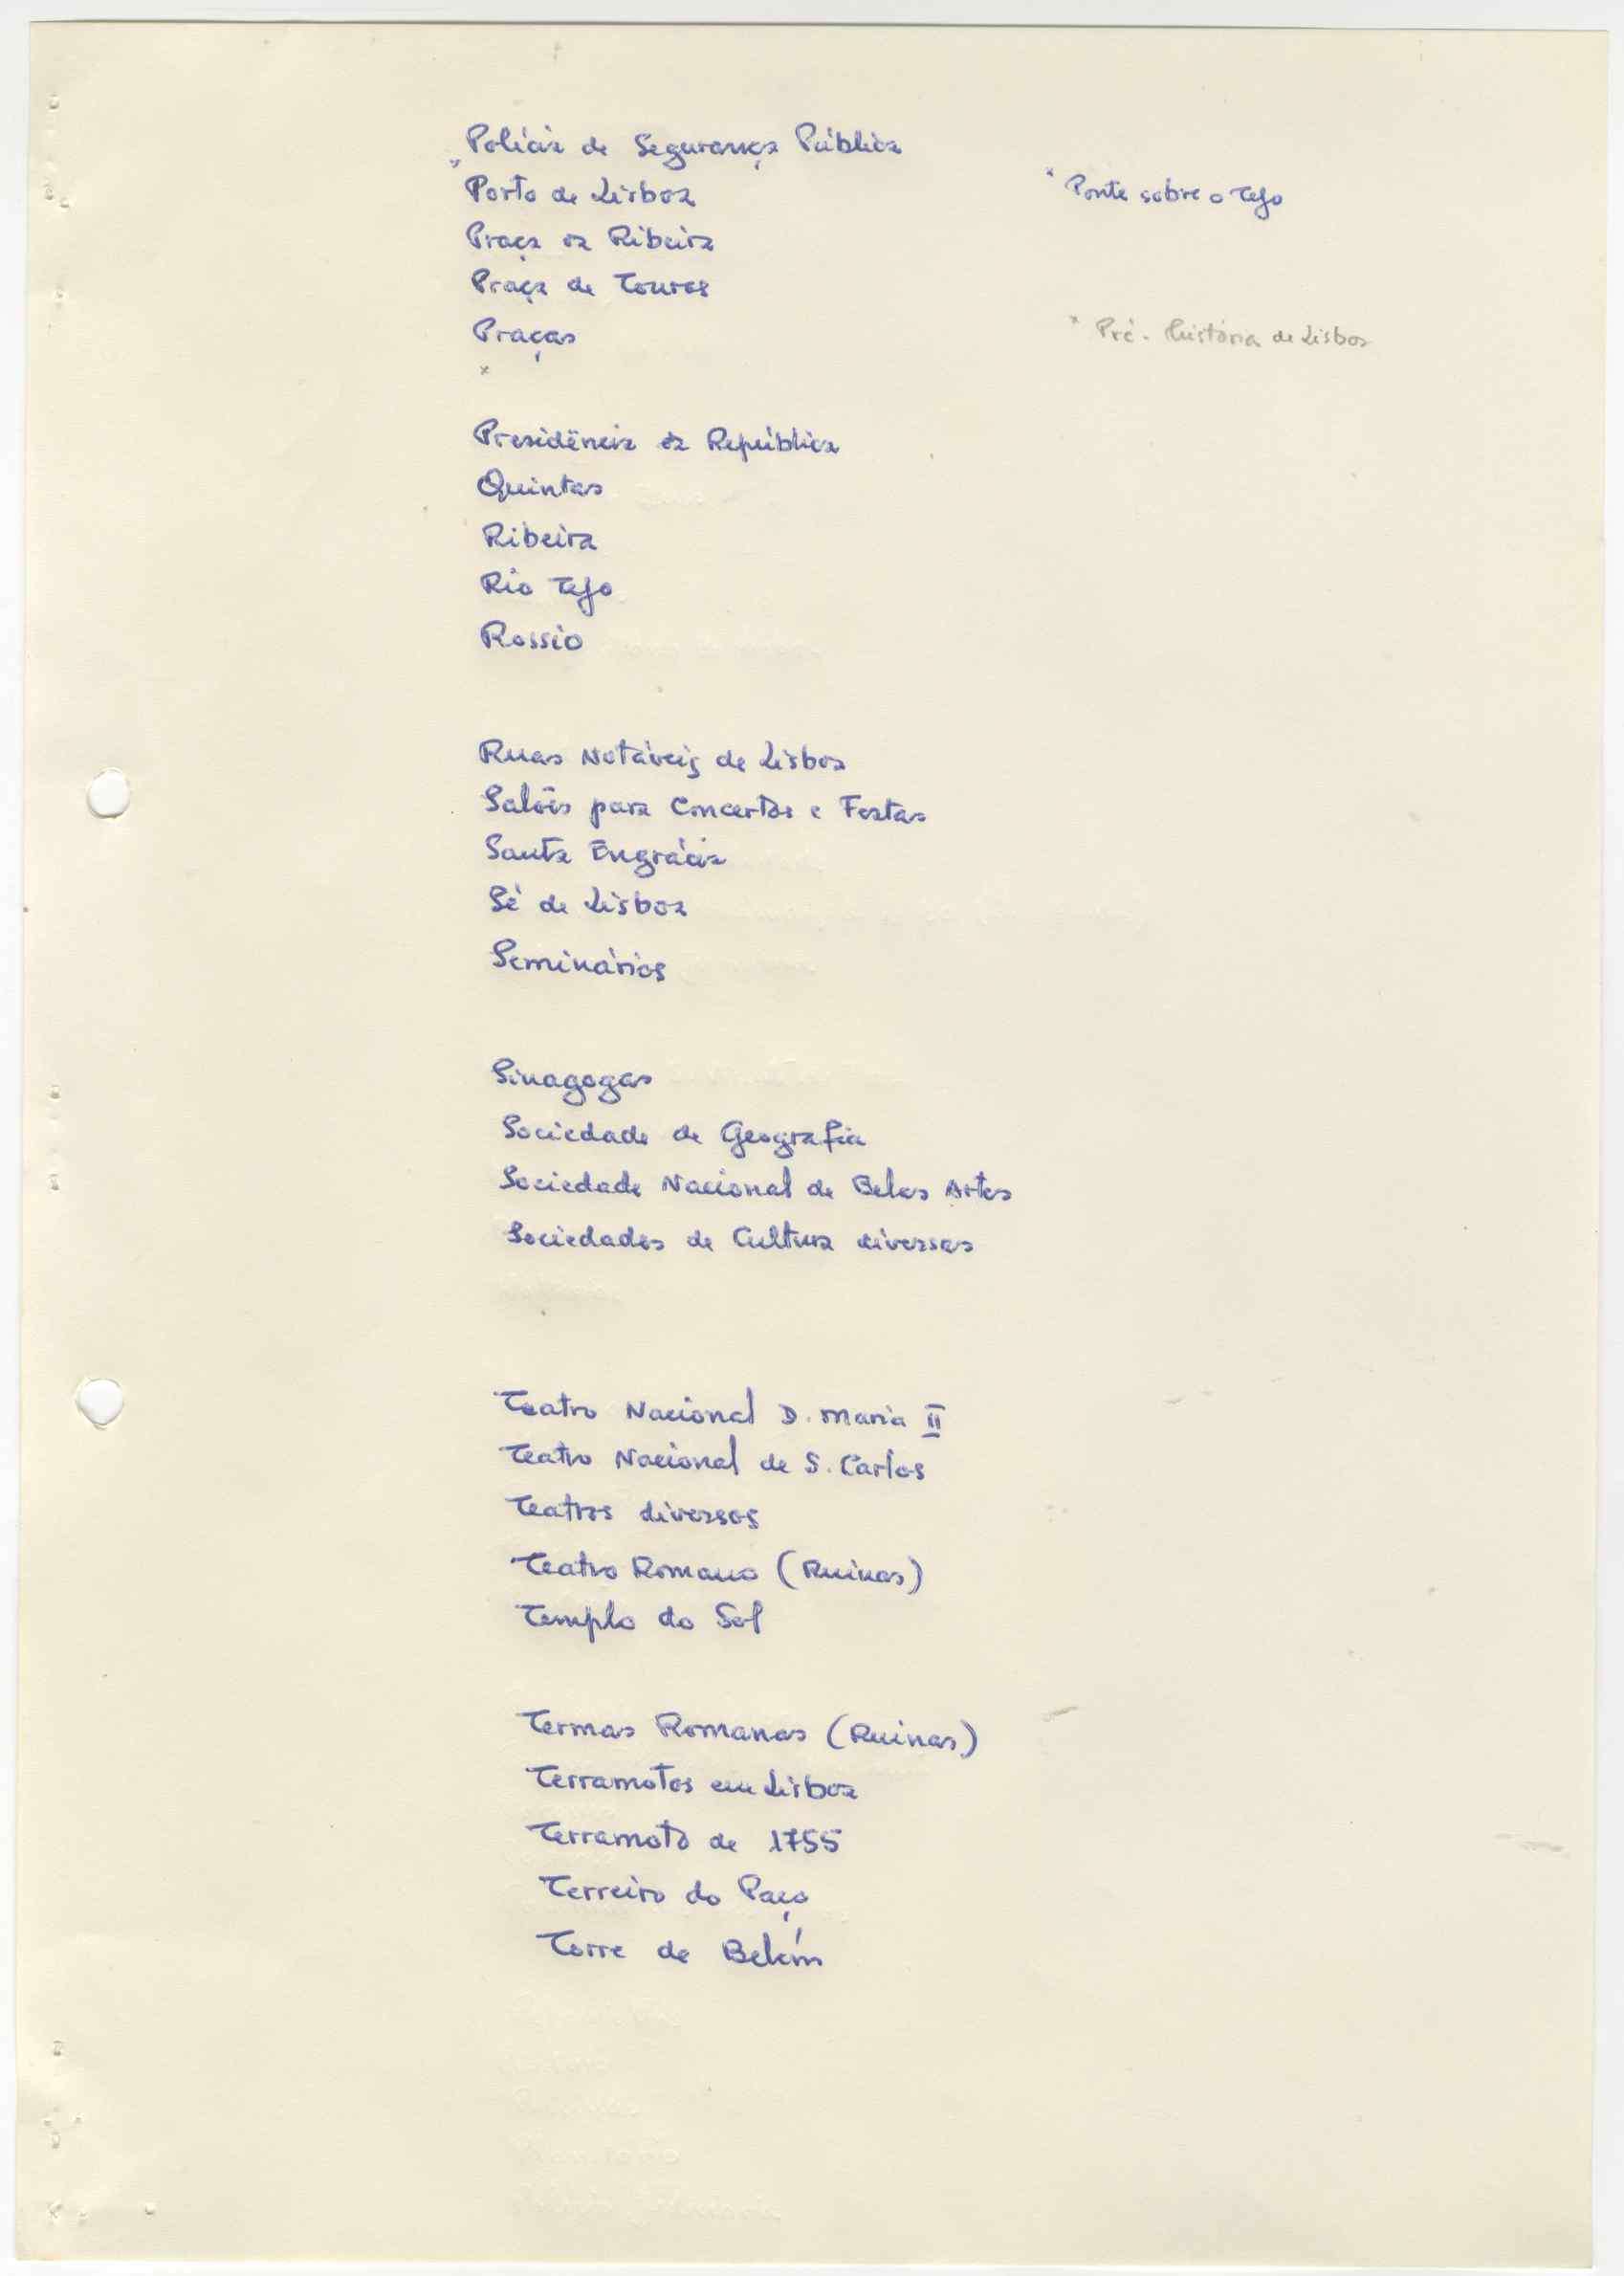 Polícia de Segurança Pública
× Porto de Lisboa
× Ponte sobre o Tejo
Praça da Ribeira
Praça de Touros
Praças
× Pré-história de Lisboa
×
Presidência da República
Quintas
Ribeira
Rio Tejo
Rossio
Ruas Notáveis de Lisboa
Salões para Concertos e Festas
Santa Engrácia
Sé de Lisboa
Seminários
Sinagogas
Sociedade de Geografia
Sociedade Nacional de Belas Artes
Sociedades de Cultura diversas
Teatro Nacional D. Maria II
Teatro Nacional de S. Carlos
Teatros diversos
Teatro Romano (Ruinas)
Templo do Sol
Termas Romanas (Ruinas)
Terramotos em Lisboa
Terramoto de 1755
Terreiro do Paço
Torre de Belém